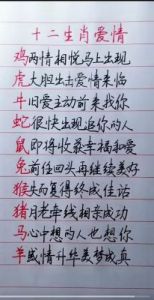 十二生肖爱情
鸡两情相悦马上出现
虎大胆出击爱情来临
牛旧爱主动前来找你
蛇很快出现追你的人
鼠即将收获幸福和爱
兔前任回头再继续美好
猴失而复得终成佳话
猪月老牵线相亲成功
马心中想的人也想你
羊感情升华美梦成真